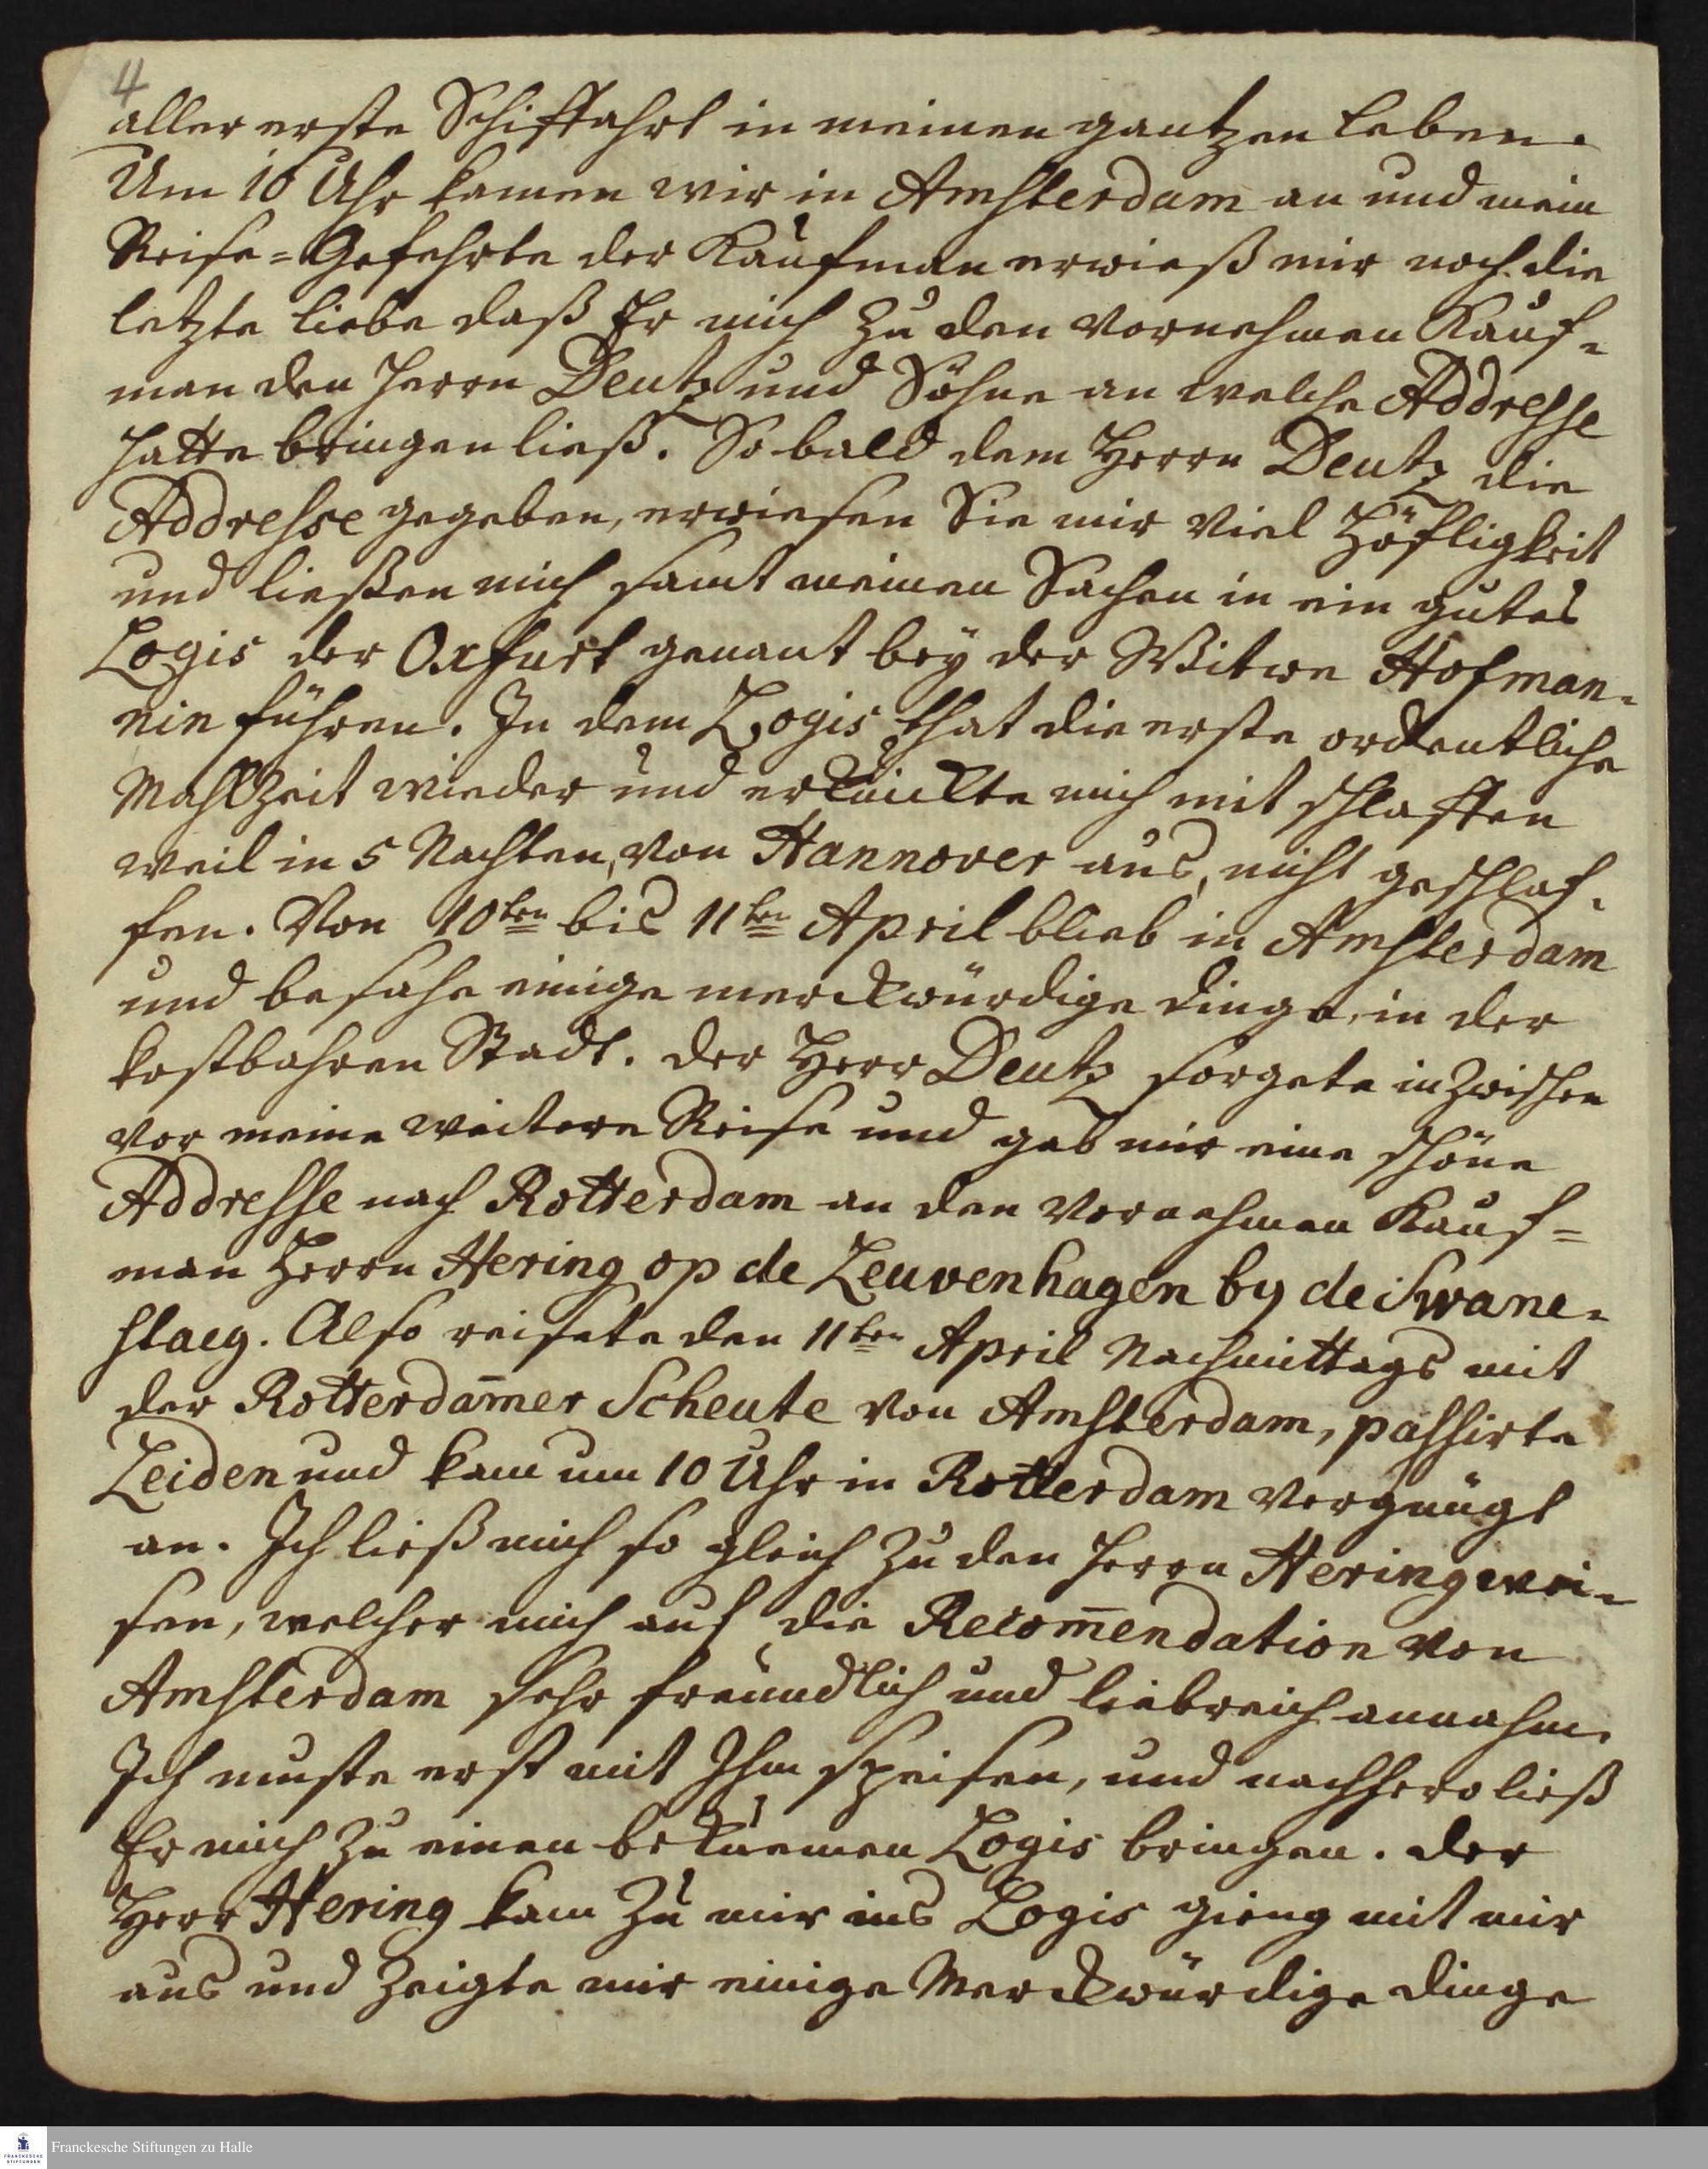 4
aller erste Schiffahrt in meinen gantzen Leben.
Um 10 Uhr kamen wir in Amsterdam an und mein
Reise=Gefehrte der Kaufman erwieß mir noch die
letzte Liebe daß Er mich zu den vornehmen Kauf=
man den Herrn Deutz und Söhne an welche Addresse
hatte bringen ließ. So bald dem Herrn Deutz die
Addresse gegeben, erwiesen Sie mir viel Höfligkeit
und ließen mich samt meinen Sachen in ein gutes
Logis der Oxfurt genant bey der Witwe Hofman=
nin führen. In dem Logis that die erste ordentliche
Mahlzeit wieder und erkuickte mich mit schlaffen
weil in 5 Nachten, von Hannover aus, nicht geschlaf=
fen. Von 10ten bis 11ten April blieb in Amsterdam
und besahe einige merckwürdige Dinge, in der
kostbahren Stadt. Der Herr Deutz sorgete inzwischen
vor meine weitere Reise und gab mir eine schöne
Addresse nach Rotterdam an den vornehmen Kauf=
man Herrn Hering op de Leuvenhagen by de Swane=
staeg. Also reisete den 11ten April Nachmittags mit
der Rotterdam̄er Scheute von Amsterdam, passirte
Leiden und kam um 10 Uhr in Rotterdam vergnügt
an. Ich ließ mich so gleich zu den Herrn Hering wei=
sen, welcher mich auf die Recom̄endation von
Amsterdam sehr freundlich und liebreich annahm.
Ich muste erst mit Ihm speisen, und nachhero ließ
Er mich zu einen bekuemen Logis bringen. Der
Herr Hering kam zu mir ins Logis gieng mit mir
aus und zeigte mir einige Merckwürdige Dinge
Franckesche Stiftungen zu Halle
FRANCKESCHE
STIFTUNGEN